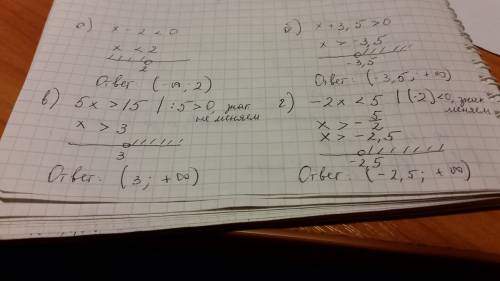 а) x - 2 < 0
x < 2
2
Ответ: (-∞; 2)
б) x + 3,5 > 0
x > -3,5
-3,5
Ответ: (-3,5; +∞)
в) 5x > 15 | :5 > 0, знак не меняем
x > 3
3
Ответ: (3; +∞)
г) -2x < 5 | (:-2) < 0, знак меняем
x > -5/2
x > -2,5
-2,5
Ответ: (-2,5; +∞)